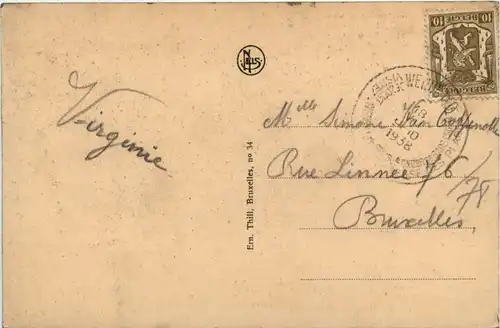 NELS
10 BELGIE 10
BELGIQUE
18
10
1938
Virginie
Mlle Simone Van
Rue Linnée 76/78
Bruxelles
Ern. Thill, Bruxelles, no 34